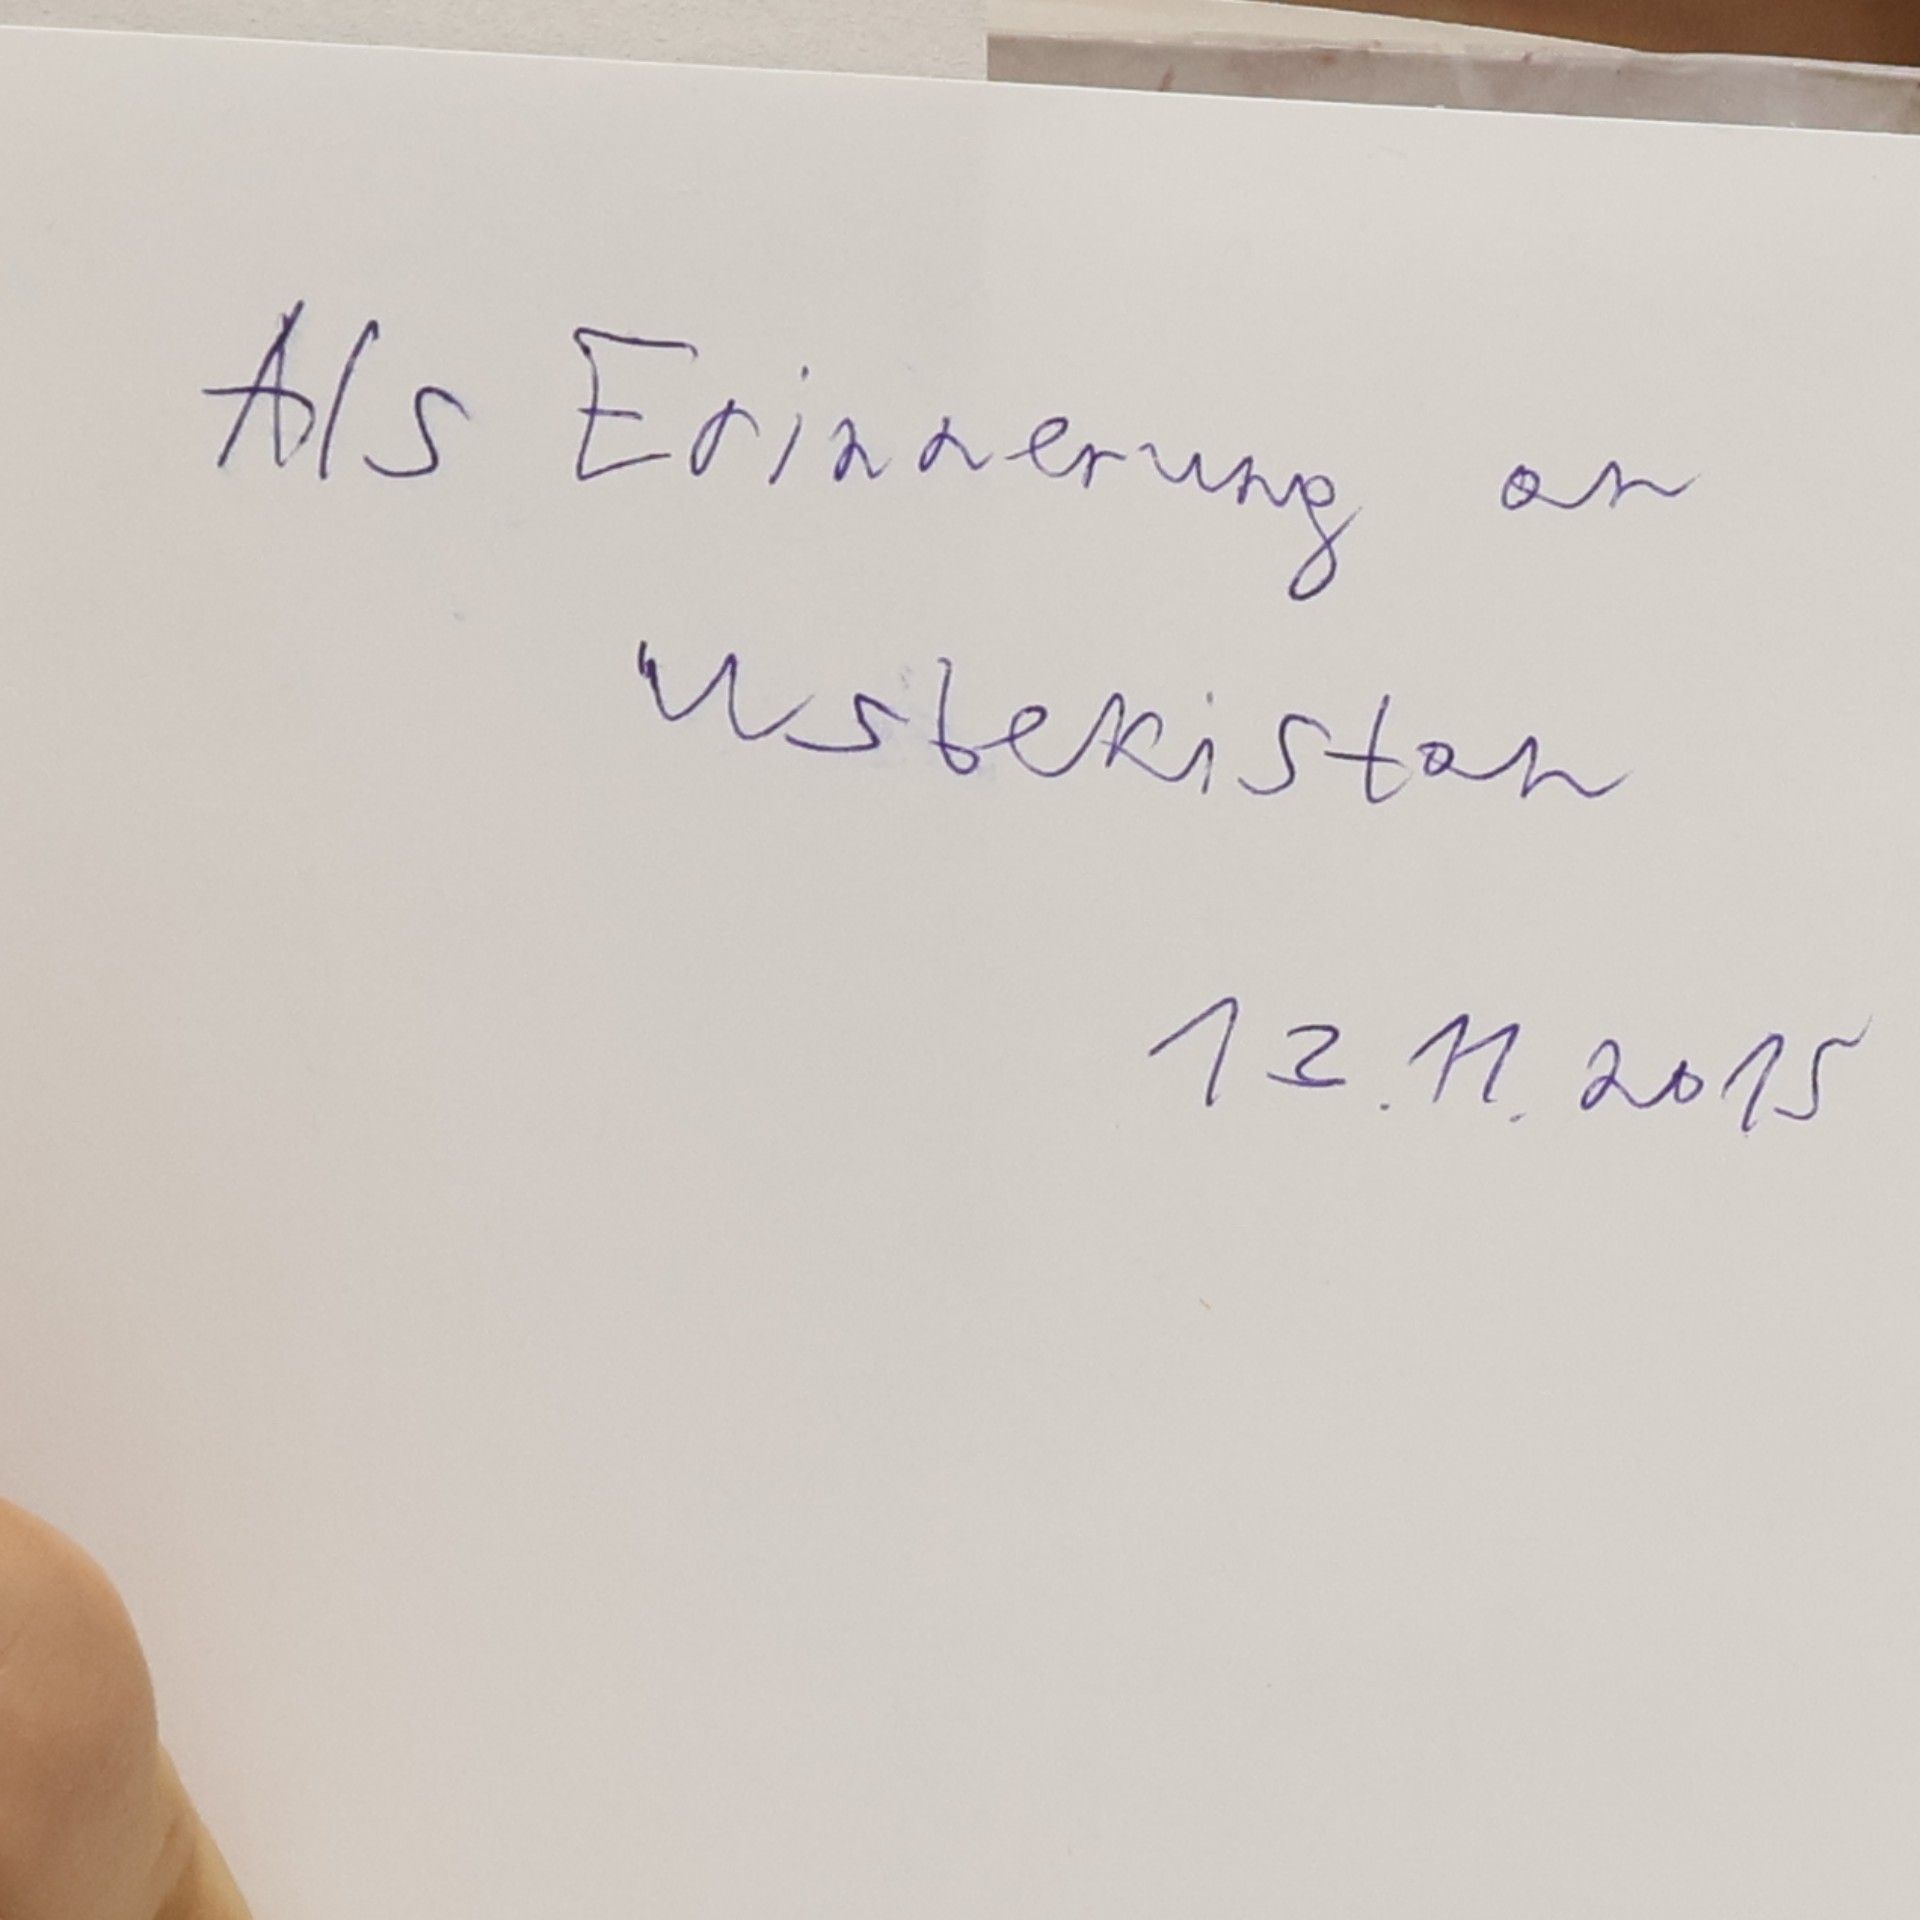 Als Erinnerung an
Usbekistan
12.11.2015